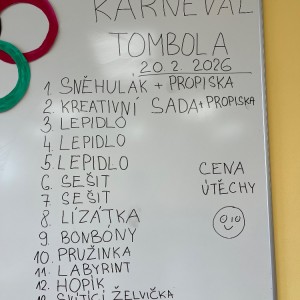 KARNEVAL
TOMBOLA
20.2.2026
1. SNĚHULÁK + PROPISKA
2. KREATIVNÍ SADA + PROPISKA
3. LEPIDLO
4. LEPIDLO
5. LEPIDLO
6. SEŠIT
7. SEŠIT
8. LÍZÁTKA
9. BONBÓNY
10. PRUŽINKA
11. LABYRINT
12. HOPÍK
13. SVÍTÍCÍ ŽELVIČKA
CENA
ÚTĚCHY